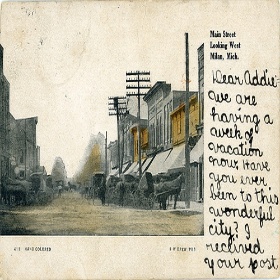 Main Street
Looking West
Milan, Mich.
Dear Addie-
we are
having a
week of
vacation
now. Have
you ever
been to this
wonderful
city? I
received
your post
HAND COLORED